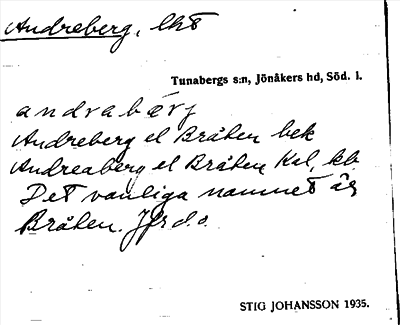 Andreberg, lht
Tunabergs s:n, Jönåkers hd, Söd. l.
andrabærj
Andreberg el Bråten bek
Andreaberg el Bråten Kal, kb.
Det vanliga namnet är
Bråten. Jfr d. o.
STIG JOHANSSON 1935.